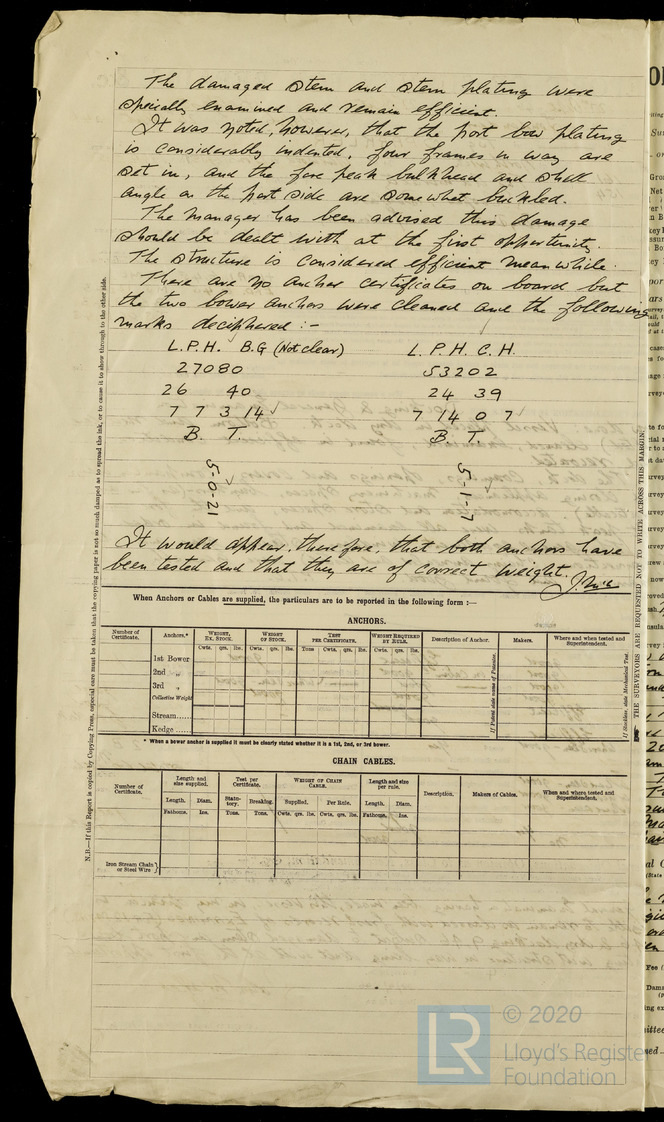 The damaged stem and stem plating were
specially examined and remain efficient.
It was noted, however, that the port bow plating
is considerably indented, four frames in way are
set in, and the fore peak bulkhead and shell
angle on the port side are somewhat buckled.
The manager has been advised this damage
should be dealt with at the first opportunity.
The structure is considered efficient meanwhile.
There are no anchor certificates on board but
the two bower anchors were cleaned and the following
marks deciphered :-
L.P.H. B.G (Not clear) L. P. H. C. H.
27080 53202
26 40 24 39
7 7 3 14 7 14 0 7
B. T. B. T.
5-0-21 5-1-7
It would appear, therefore, that both anchors have
been tested and that they are of correct weight.
When Anchors or Cables are supplied, the particulars are to be reported in the following form :—
ANCHORS.
Number of Certificate. Anchors.* Weight, Ex. Stock. Weight of Stock. Test per Certificate. Weight Required by Rule. Description of Anchor. Makers. Where and when tested and Superintendent.
Cwts. qrs. lbs. Cwts. qrs. lbs. Tons Cwt. qrs. lbs. Cwts. qrs. lbs.
1st Bower
2nd „
3rd „
Collective Weight
Stream......
Kedge ......
If Patent state name of Patentee.
If Stockless, state Mechanical Test.
* When a bower anchor is supplied it must be clearly stated whether it is a 1st, 2nd, or 3rd bower.
CHAIN CABLES.
Number of Certificate. Length and size supplied. Test per Certificate. Weight of Chain Cable. Length and size per rule. Description. Makers of Cables. When and where tested and Superintendent.
Length. Diam. Statutory. Breaking. Supplied. Per Rule. Length. Diam.
Fathoms. Ins. Tons. Tons. Cwts. qrs. lbs. Cwts. qrs. lbs. Fathoms. Ins.
Iron Stream Chain or Steel Wire }
N.B.—If this Report is copied by Copying Press, especial care must be taken that the copying paper is not so much damped as to spread the ink, or to cause it to show through to the other side.
THE SURVEYORS ARE REQUESTED NOT TO WRITE ACROSS THIS MARGIN.
LR
© 2020
Lloyd's Register
Foundation